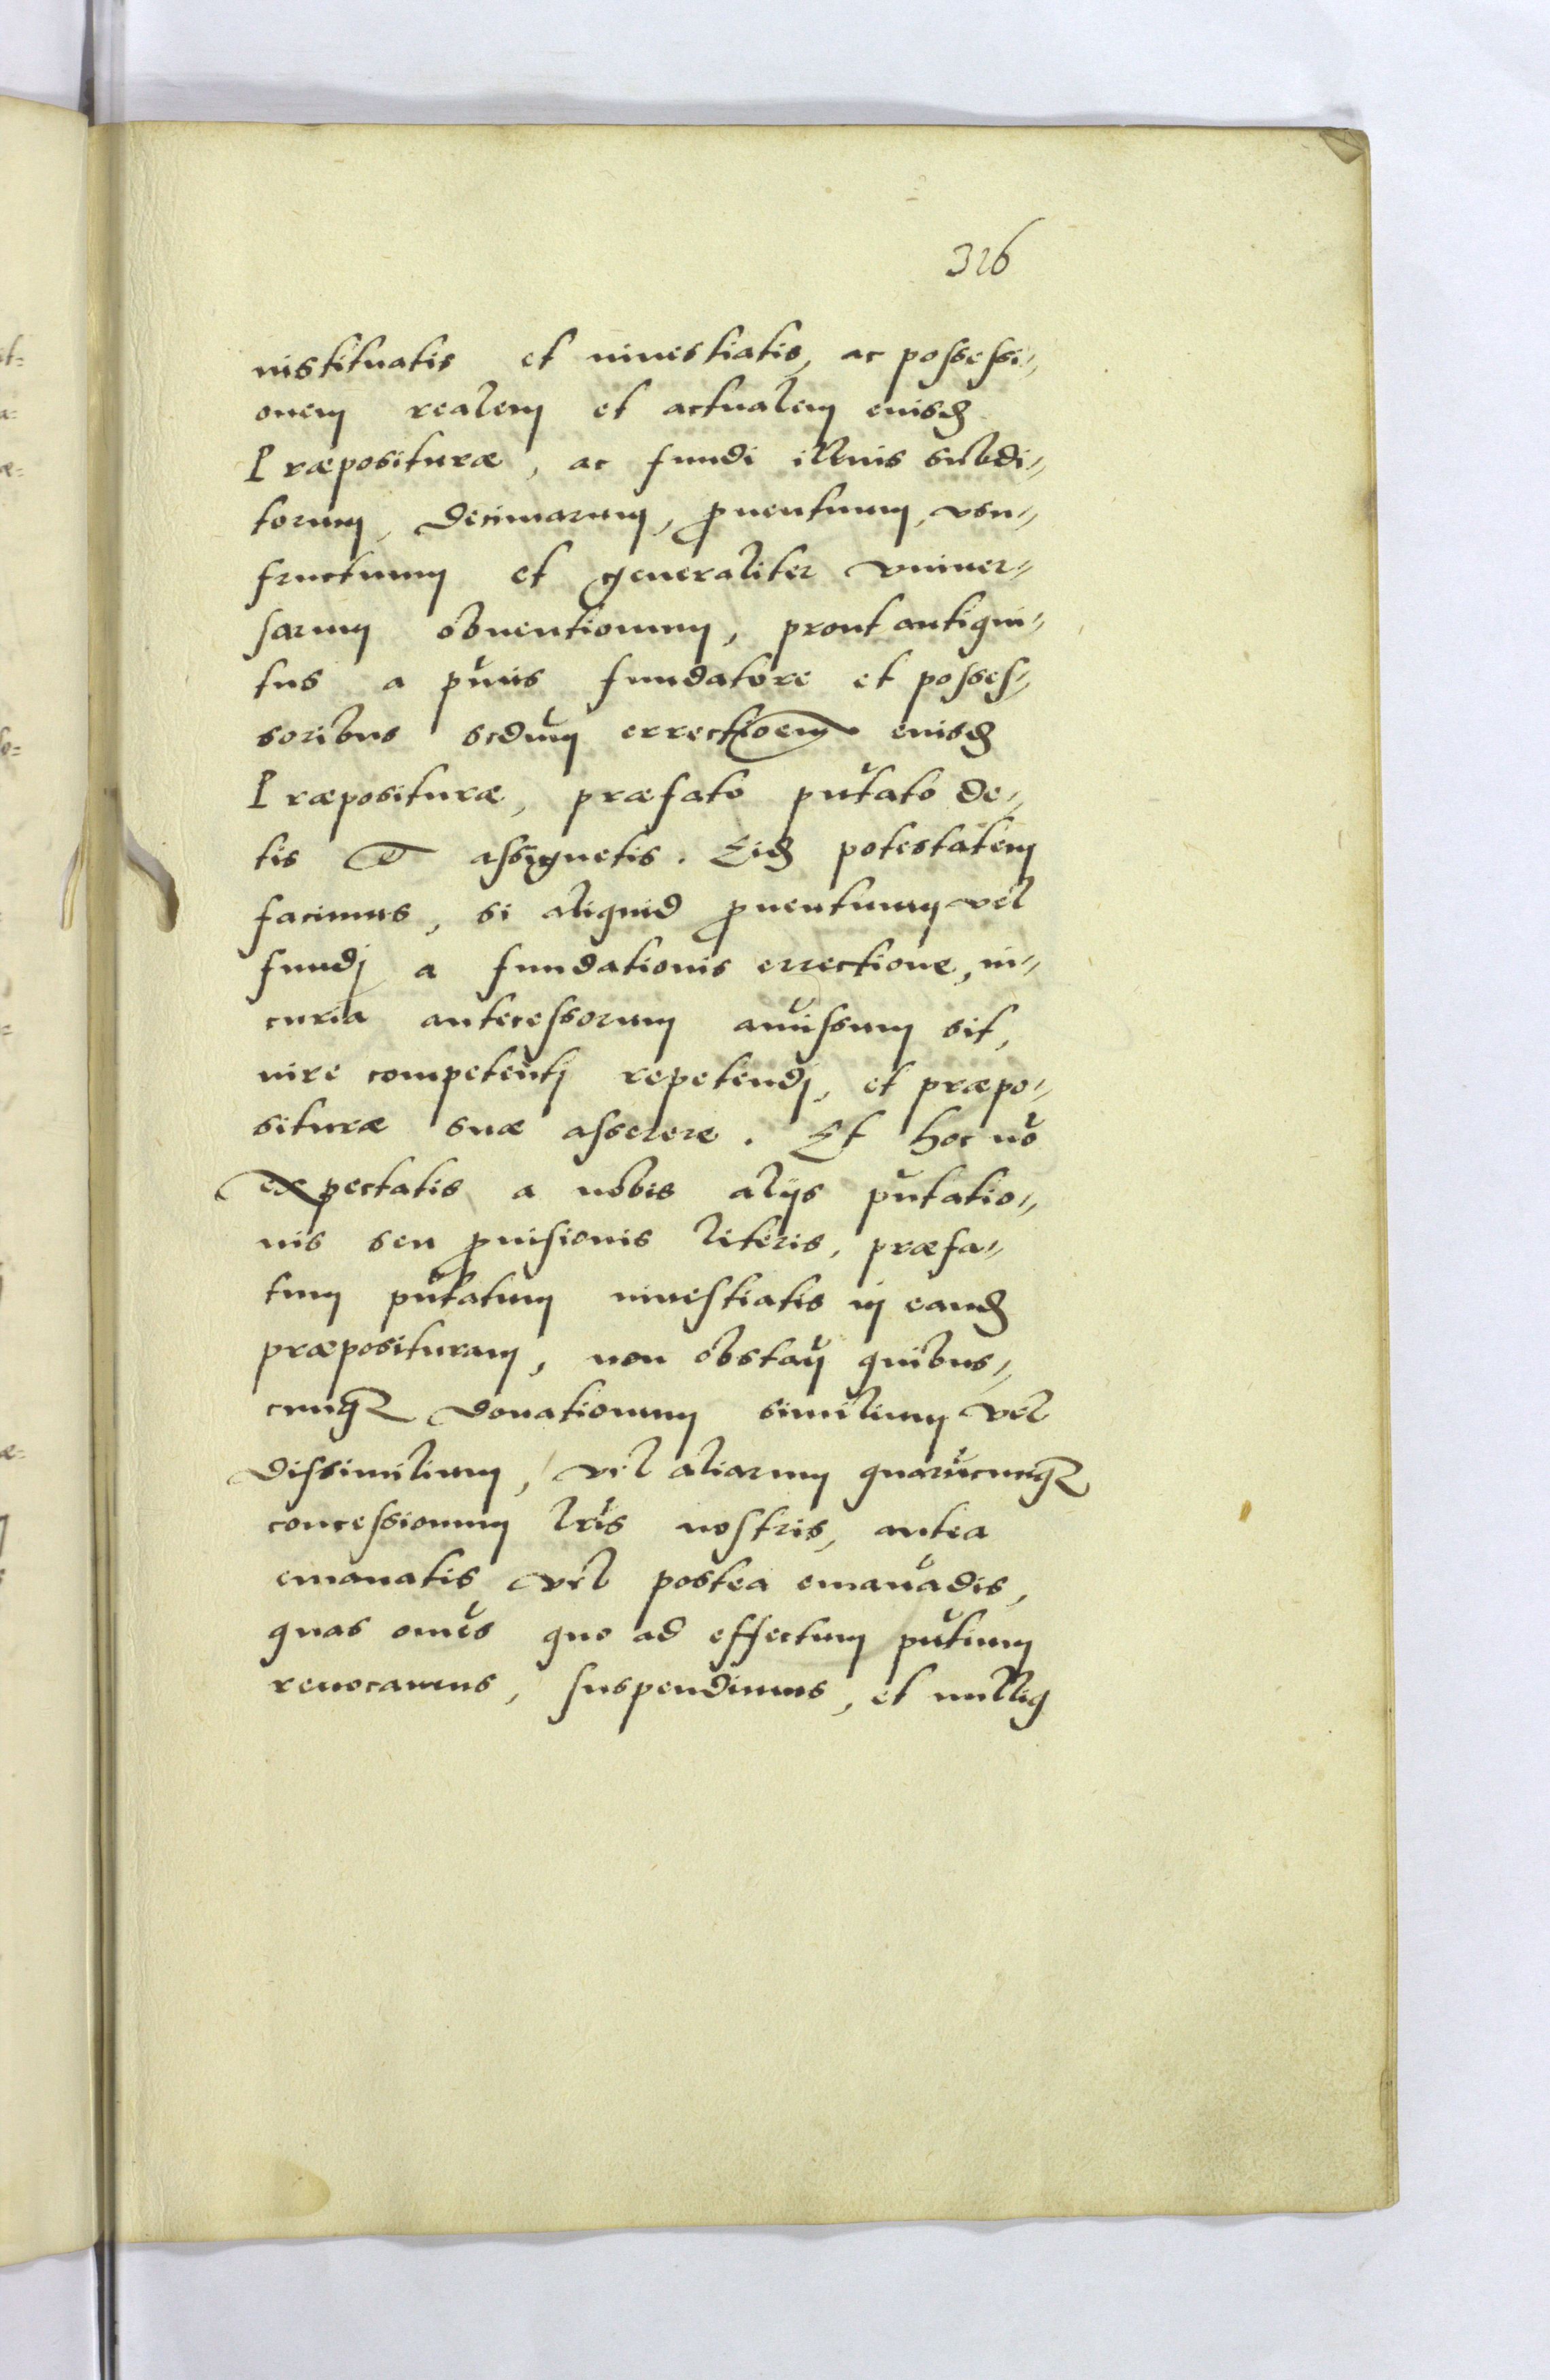 326
instituatis et inuestiatis, ac possessi=
onem realem et actualem eiusd
Præposituræ, ac fundi illius subdi=
torum, decimarum, prouentuum, vsu=
fructuum et generaliter vniuer=
sarum obuentionum, prout antiqui=
tus a pimis fundatore et posses=
soribus scdum errectioem eiusd
Præposituræ, præfato pntato de=
tis et assignetis. Eid potestatem
facimus, si aliquid prouentuum vel
fundj a fundationis errectione, in=
curia antecessorum amissum sit,
iure competentj repetendj, et præpo=
situræ suæ asserere. Et hoc nō
expectatis a nobis alijs pntatio=
nis seu prouisionis literis, præfa=
tum pntatum inuestiatis in eand
præposituram, non obstan quibus=
cunq donationum similium vel
dissimilium, vel aliarum quarūcunq
concessionum lris nostris, antea
emanatis vel postea emanādis,
quas omēs quo ad effectum pntium
reuocamus, suspendimus, et nulliq